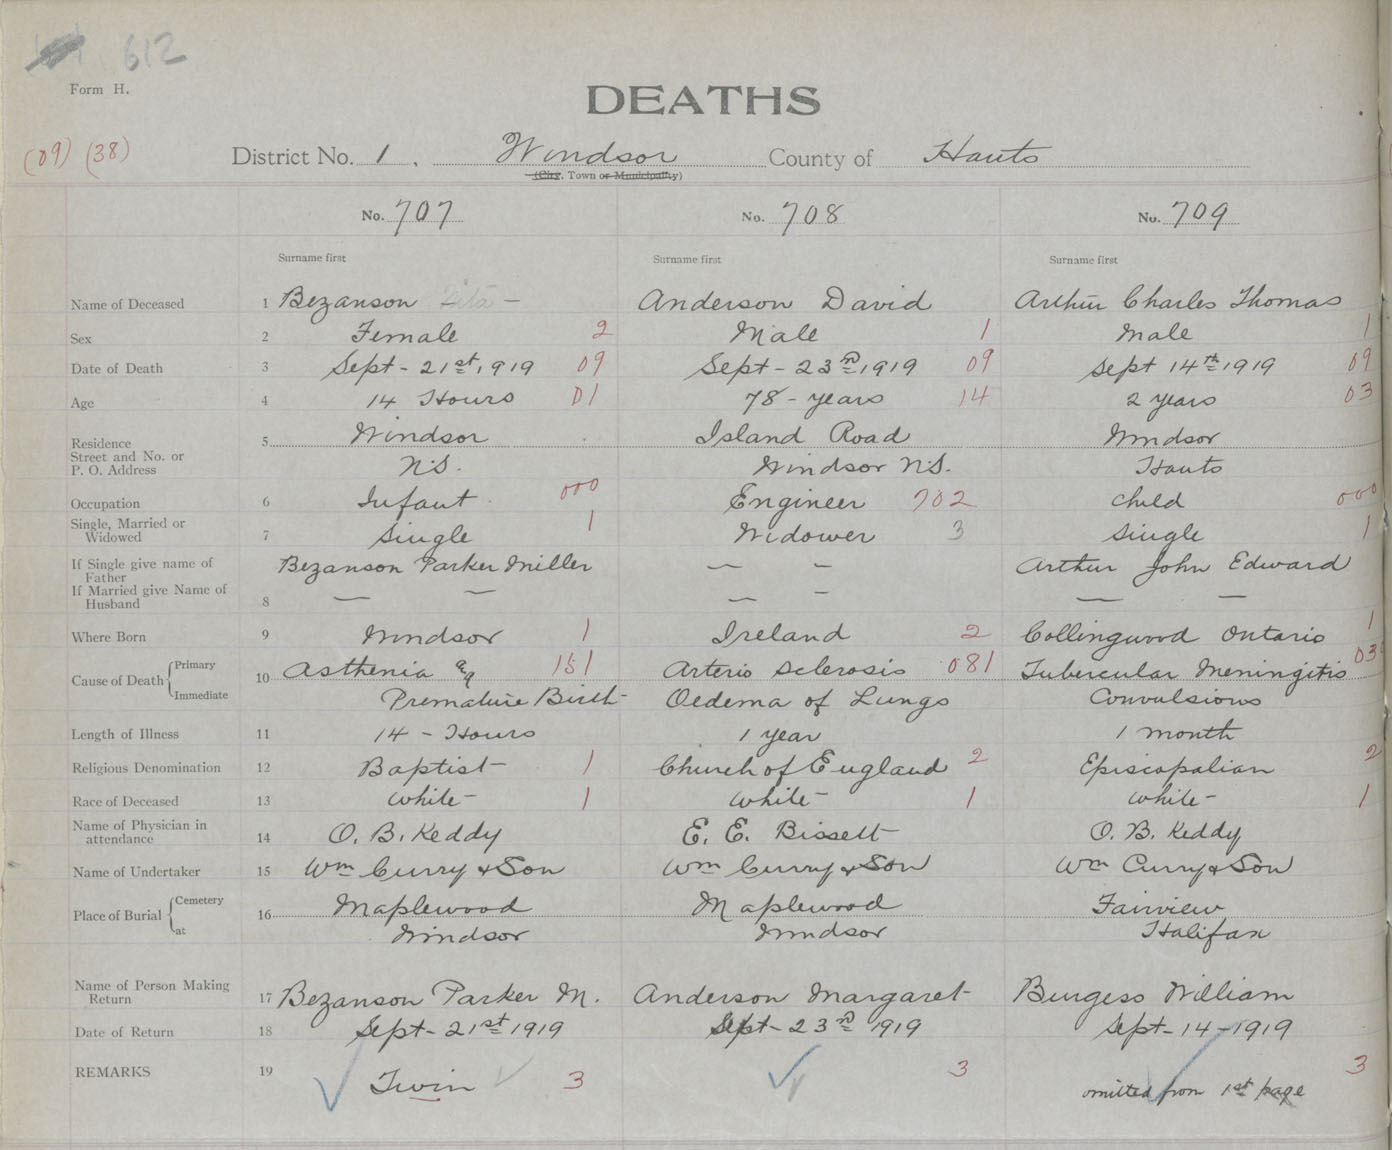 612
Form H.
DEATHS
(09) (38)
District No. 1, Windsor County of Hants
(City, Town or Municipality)
No. 707 No. 708 No. 709
Surname first Surname first Surname first
Name of Deceased 1 Bezanson – Anderson David Arthur Charles Thomas
Sex 2 Female 2 Male 1 Male 1
Date of Death 3 Sept - 21st, 1919 09 Sept - 23rd 1919 09 Sept 14th 1919 09
Age 4 14 Hours 01 78 - years 14 2 years 03
Residence
Street and No. or 5 Windsor Island Road Windsor
P. O. Address N.S. Windsor N.S. Hants
Occupation 6 Infant 000 Engineer 702 Child 000
Single, Married or
Widowed 7 Single 1 Widower 3 Single 1
If Single give name of
Father Bezanson Parker Miller — – Arthur John Edward
If Married give Name of
Husband 8 — — — – — —
Where Born 9 Windsor 1 Ireland 2 Collingwood Ontario 1
Cause of Death Primary 10 Asthenia 151 Arterio Sclerosis 081 Tubercular Meningitis
Immediate Premature Birth Oedema of Lungs Convulsions
Length of Illness 11 14 - Hours 1 year 1 month
Religious Denomination 12 Baptist 1 Church of England 2 Episcopalian 2
Race of Deceased 13 White 1 White 1 White 1
Name of Physician in
attendance 14 O. B. Keddy E. E. Bissett O. B. Keddy
Name of Undertaker 15 Wm Curry & Son Wm Curry & Son Wm Curry & Son
Place of Burial Cemetery 16 Maplewood Maplewood Fairview
at Windsor Windsor Halifax
Name of Person Making
Return 17 Bezanson Parker M. Anderson Margaret Burgess William
Date of Return 18 Sept - 21st 1919 Sept - 23rd 1919 Sept - 14 - 1919
REMARKS 19 Twin 3 3 omitted from 1st page 3